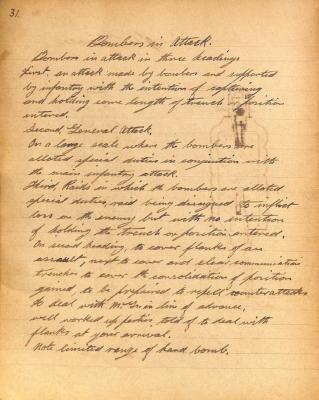 31.
Bombers in Attack.
Bombers in attack in three headings
first, an attack made by bombers and supported
by infantry with the intention of captiving
and holding some length of trench or position
entered.
Second, General Attack.
On a large scale where the bombers are
alloted special duties in conjunction with
the main infantry attack.
Third, Raids in which the bombers are alloted
special duties, raid being designed to inflict
loss on the enemy but with no intention
of holding the trench or position entered.
On second heading, to cover flanks of an
assault, next to cover and clear communication
trenches to cover the consolidation of position
gained, to be prepared to repell counterattacks
to deal with M. Gun in line of advance.
well worked up parties, told of to deal with
flanks at your arrival.
Note limited range of hand bomb.